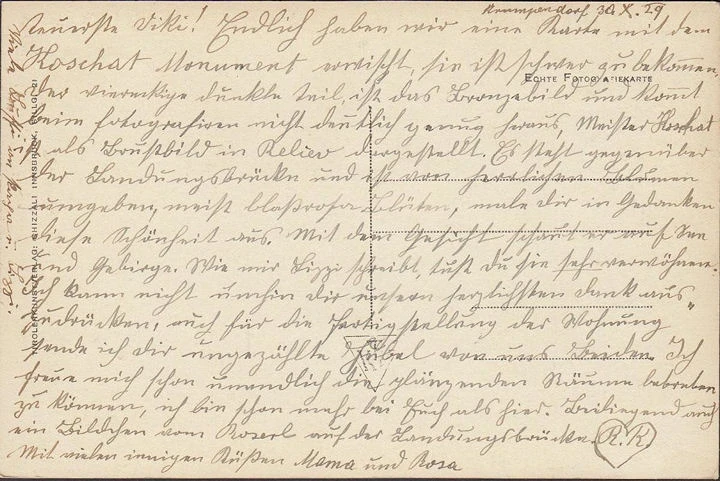 Krumpendorf 30.X.29
Teuerste Viki! Endlich haben wir eine Karte mit dem
Koschat Monument erwischt, sie ist schwer zu bekommen,
ECHTE FOTOGRAFIEKARTE
der viereckige dunkle Teil, ist das Bronzebild und kommt
beim fotografiren nicht deutlich genug heraus, Meister Koschat
ist als Brustbild in Reliev dargestellt. Es steht gegenüber
der Landungsbrücke und ist von herrlichen Blumen
umgeben, meist blaßrosa Blüten, male dir in Gedanken
diese Schönheit aus. Mit dem Gesicht schaut er auf See
und Gebirge. Wie mir Lizzi schreibt, tust du sie sehr verwöhnen.
Ich kann nicht umhin dir unsern herzlichsten Dank aus„
zudrücken, auch für die Fertigstellung der Wohnung
sende ich dir ungezählte Jubel von uns Beiden. Ich
freue mich schon unendlich die glänzenden Räume betreten
zu können, ich bin schon mehr bei Euch als hier. Beiliegend auch
ein Bildchen vom Roserl auf der Landungsbrücke. R.K
Mit vielen innigen Küßen Mama und Rosa
Viele an Lizzi.
TIROLER KUNSTVERLAG CHIZZALI INNSBRUCK